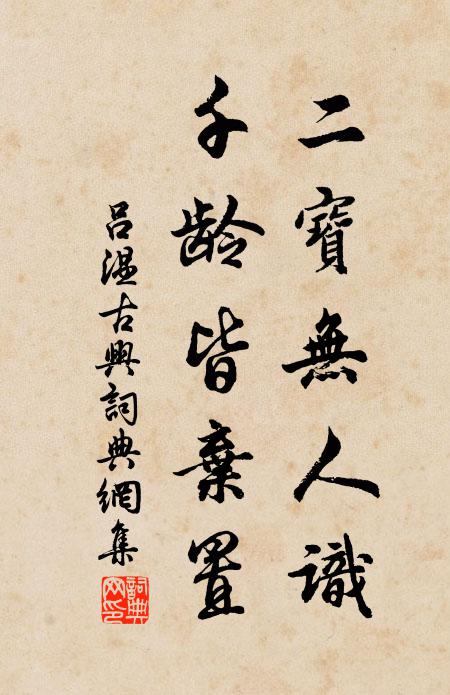 二寶無人識
千齡皆棄置
吕温古興詞典網集
詞典网印